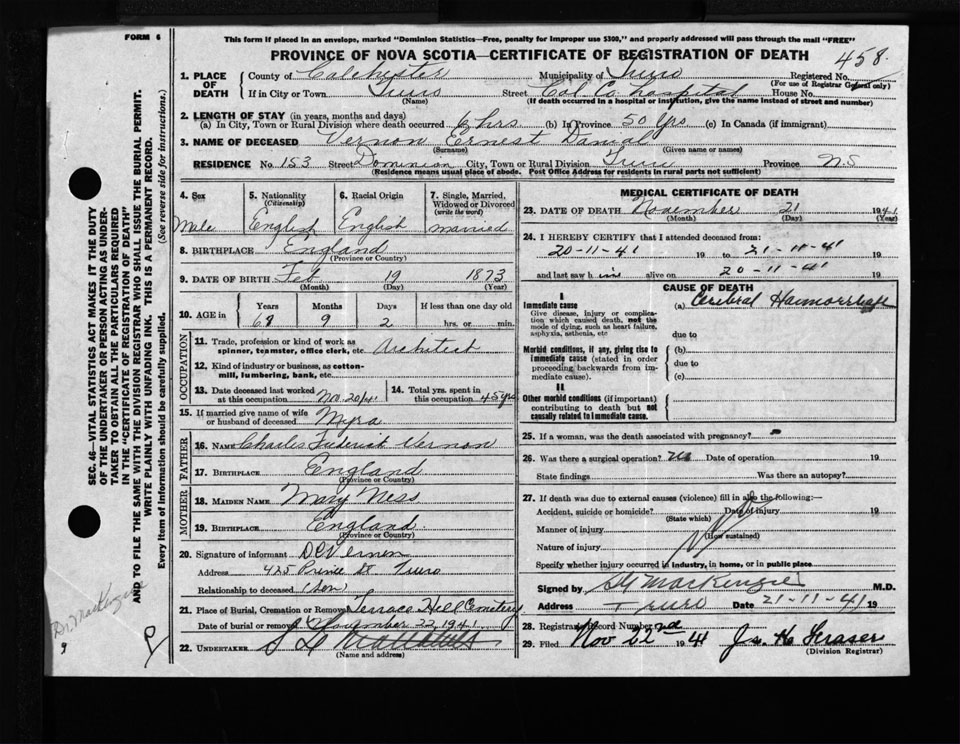 FORM 6
This form if placed in an envelope, marked "Dominion Statistics—Free, penalty for improper use $300," and properly addressed will pass through the mail "FREE"
PROVINCE OF NOVA SCOTIA—CERTIFICATE OF REGISTRATION OF DEATH
458
1. PLACE OF DEATH County of Colchester Municipality of Truro Registered No.
(For use of Registrar General only)
If in City or Town Truro Street Col. Co. hospital House No.
(Name) (If death occurred in a hospital or institution, give the name instead of street and number)
2. LENGTH OF STAY (in years, months and days)
(a) In City, Town or Rural Division where death occurred 6 hrs (b) In Province 50 Yrs (c) In Canada (if immigrant)
3. NAME OF DECEASED Vernon Ernest Daniel
(Surname) (Given name or names)
RESIDENCE No. 153 Street Dominion City, Town or Rural Division Truro Province N.S
(Residence means usual place of abode. Post Office Address for residents in rural parts not sufficient)
4. Sex Male
5. Nationality (Citizenship) English
6. Racial Origin English
7. Single, Married, Widowed or Divorced (write the word) married
8. BIRTHPLACE England
(Province or Country)
9. DATE OF BIRTH Feb 19 1873
(Month) (Day) (Year)
10. AGE in Years 68 Months 9 Days 2 If less than one day old hrs. or min.
OCCUPATION
11. Trade, profession or kind of work as spinner, teamster, office clerk, etc. Architect
12. Kind of industry or business, as cotton-mill, lumbering, bank, etc.
13. Date deceased last worked at this occupation Nov. 20/41
14. Total yrs. spent in this occupation 45 yrs
15. If married give name of wife or husband of deceased Myra
FATHER
16. NAME Charles Frederick Vernon
17. BIRTHPLACE England
(Province or Country)
MOTHER
18. MAIDEN NAME Mary Ness
19. BIRTHPLACE England
(Province or Country)
20. Signature of informant D C Vernon
Address 425 Prince St Truro
Relationship to deceased Son
21. Place of Burial, Cremation or Removal Terrace Hill Cemetery
Date of burial or removal November 22, 1941
22. UNDERTAKER
(Name and address)
MEDICAL CERTIFICATE OF DEATH
23. DATE OF DEATH November 21 1941
(Month) (Day) (Year)
24. I HEREBY CERTIFY that I attended deceased from:
20-11-41 19 to 21-11-41 19
and last saw him alive on 20-11-41 19
CAUSE OF DEATH
I
Immediate cause
Give disease, injury or complication which caused death, not the mode of dying, such as heart failure, asphyxia, asthenia, etc
(a) Cerebral Haemorrhage
due to
Morbid conditions, if any, giving rise to immediate cause (stated in order proceeding backwards from immediate cause).
(b)
due to
(c)
II
Other morbid conditions (if important) contributing to death but not causally related to immediate cause.
25. If a woman, was the death associated with pregnancy? -
26. Was there a surgical operation? no Date of operation 19
State findings Was there an autopsy?
27. If death was due to external causes (violence) fill in also the following:—
Accident, suicide or homicide? Date of injury 19
(State which)
Manner of injury
(How sustained)
Nature of injury
Specify whether injury occurred in industry, in home, or in public place
Signed by MacKenzie M.D.
Address Truro Date 21-11-41 19
28. Registrar's Record Number
29. Filed Nov 22nd 1941 Jas. H. Fraser
(Division Registrar)
SEC. 46—VITAL STATISTICS ACT MAKES IT THE DUTY
OF THE UNDERTAKER OR PERSON ACTING AS UNDER-
TAKER TO OBTAIN ALL THE PARTICULARS REQUIRED
IN THE "CERTIFICATE OF REGISTRATION OF DEATH"
AND TO FILE THE SAME WITH THE DIVISION REGISTRAR WHO SHALL ISSUE THE BURIAL PERMIT.
WRITE PLAINLY WITH UNFADING INK. THIS IS A PERMANENT RECORD.
Every item of Information should be carefully supplied. (See reverse side for instructions.)
Dr MacKenzie
9